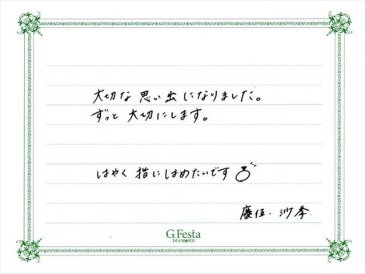 大切な思い出になりました。
ずっと大切にします。
はやく指にはめたいです
G.Festa
DIAMOND